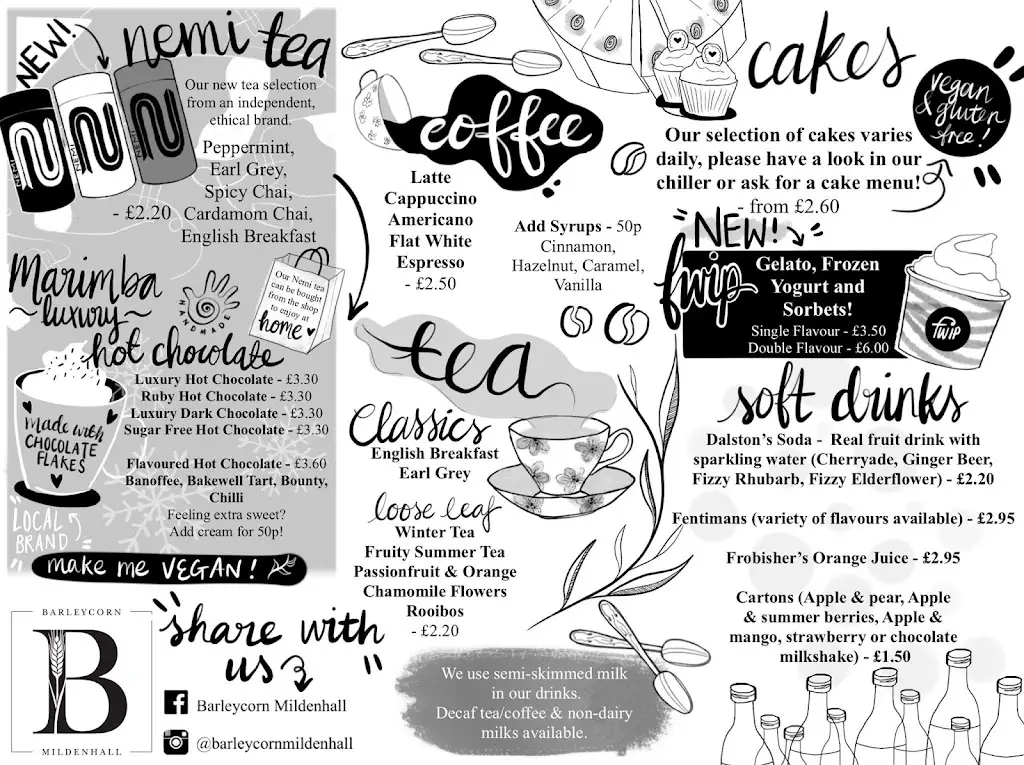 NEW!
nemi tea
Our new tea selection
from an independent,
ethical brand.
Peppermint,
Earl Grey,
Spicy Chai,
- £2.20 Cardamom Chai,
English Breakfast
Marimba
~luxury~
hot chocolate
HANDMADE
Our Nemi tea
can be bought
from the shop
to enjoy at
home
Luxury Hot Chocolate - £3.30
Ruby Hot Chocolate - £3.30
Luxury Dark Chocolate - £3.30
Sugar Free Hot Chocolate - £3.30
Flavoured Hot Chocolate - £3.60
Banoffee, Bakewell Tart, Bounty,
Chilli
Feeling extra sweet?
Add cream for 50p!
made with
CHOCOLATE
FLAKES
LOCAL
BRAND
make me VEGAN!
BARLEYCORN
B
MILDENHALL
"share with
us"
Barleycorn Mildenhall
@barleycornmildenhall
coffee
Latte
Cappuccino
Americano
Flat White
Espresso
- £2.50
Add Syrups - 50p
Cinnamon,
Hazelnut, Caramel,
Vanilla
tea
Classics
English Breakfast
Earl Grey
loose leaf
Winter Tea
Fruity Summer Tea
Passionfruit & Orange
Chamomile Flowers
Rooibos
- £2.20
We use semi-skimmed milk
in our drinks.
Decaf tea/coffee & non-dairy
milks available.
cakes
vegan
& gluten
free!
Our selection of cakes varies
daily, please have a look in our
chiller or ask for a cake menu!
- from £2.60
"NEW!"
fwip
Gelato, Frozen
Yogurt and
Sorbets!
Single Flavour - £3.50
Double Flavour - £6.00
fwip
soft drinks
Dalston's Soda - Real fruit drink with
sparkling water (Cherryade, Ginger Beer,
Fizzy Rhubarb, Fizzy Elderflower) - £2.20
Fentimans (variety of flavours available) - £2.95
Frobisher's Orange Juice - £2.95
Cartons (Apple & pear, Apple
& summer berries, Apple &
mango, strawberry or chocolate
milkshake) - £1.50